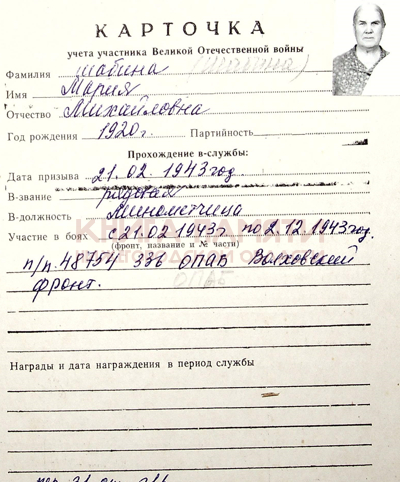 КАРТОЧКА
учета участника Великой Отечественной войны
Фамилия Шабина (Шабина)
Имя Мария
Отчество Михайловна
Год рождения 1920г. Партийность
Прохождение в-службы:
Дата призыва 21.02.1943год
В-звание рядовая
В-должность Минометчица
Участие в боях с 21.02.1943г по 2.12.1943год.
(фронт, название и № части)
п/п. 48754 336 ОПАБ Волховский
фронт.
Награды и дата награждения в период службы